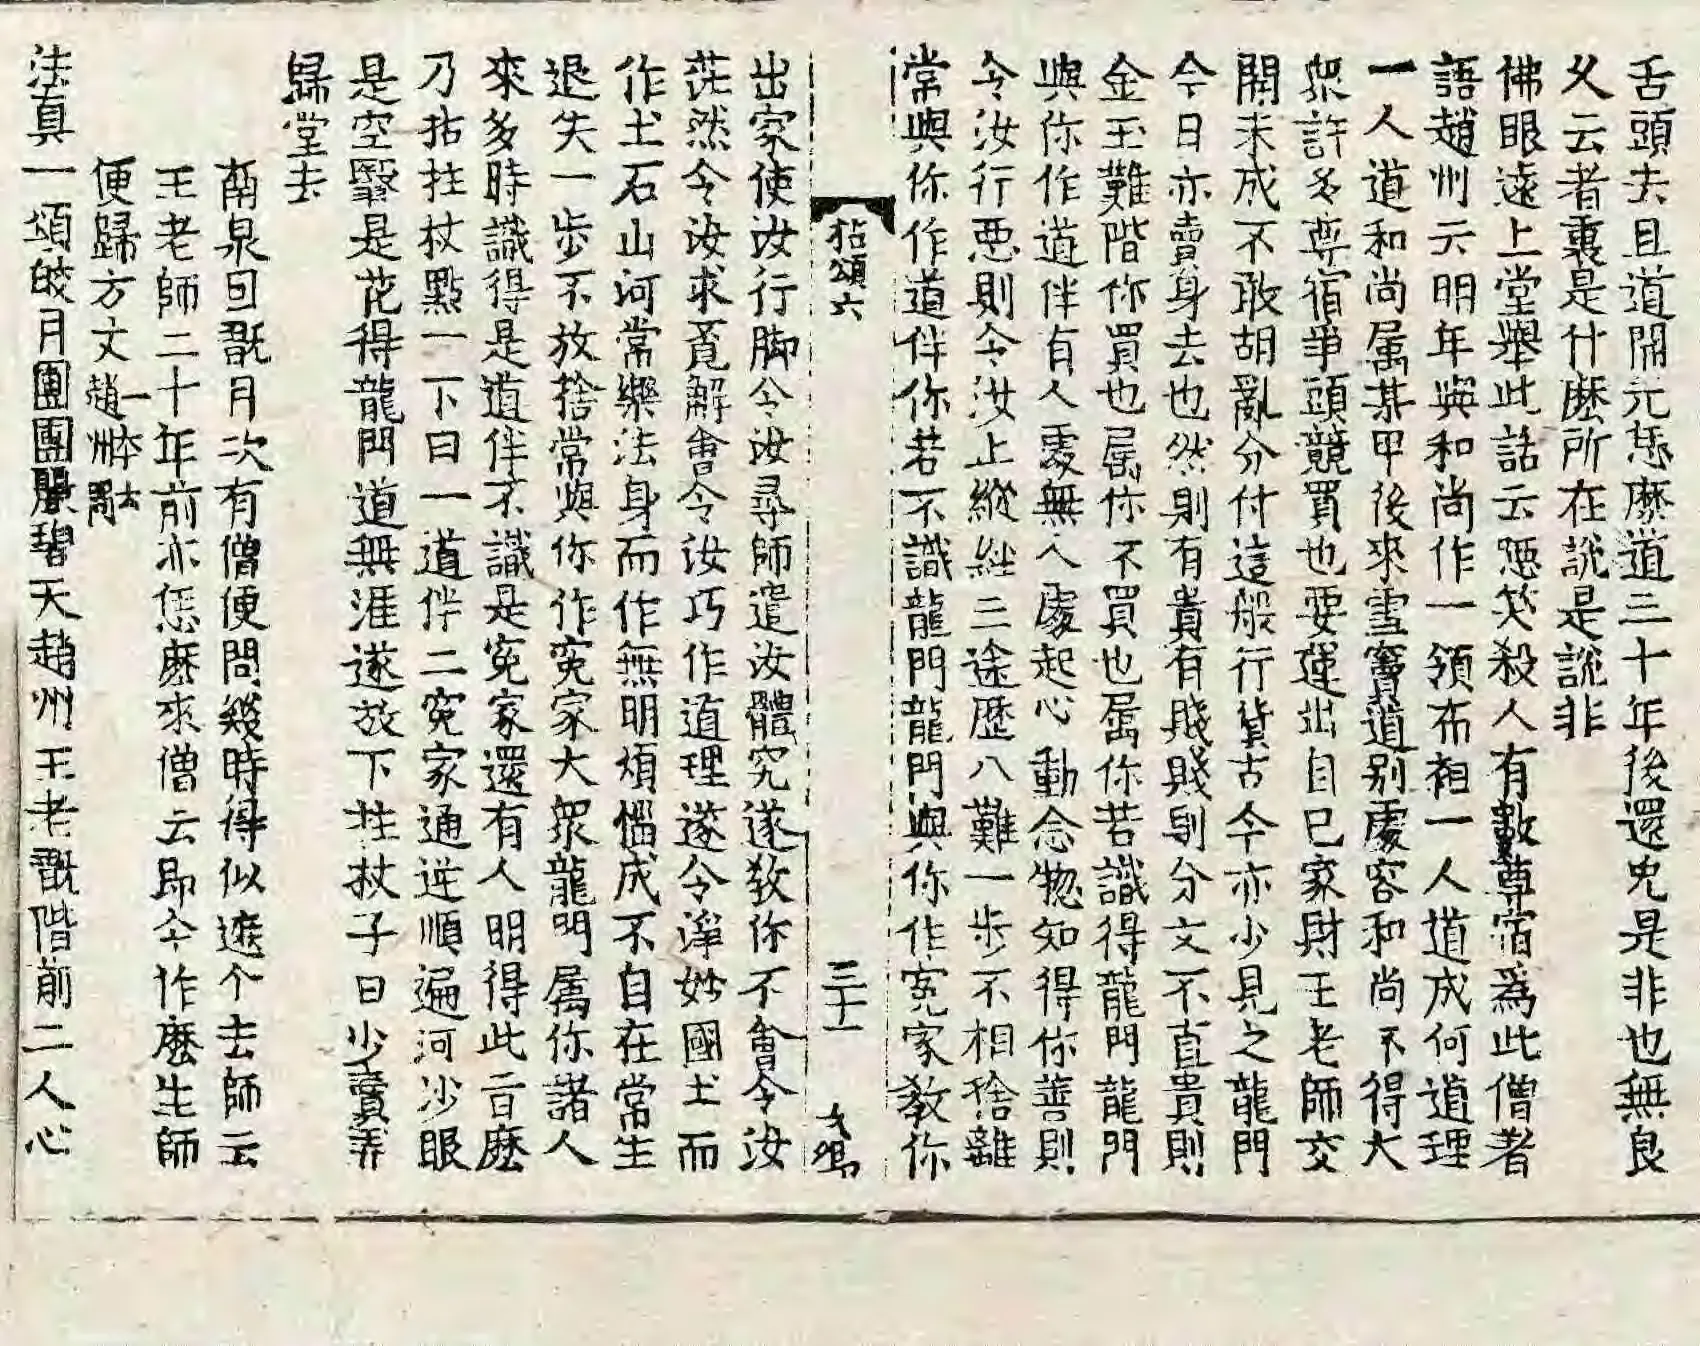 舌頭去且道開元恁麽道三十年後還免是非也無良
乆云者裏是什麽所在說是說非
佛眼遠上堂舉此話云㤙笑殺人有數尊宿爲此僧者
語趙州云明年與和尚作一領布衫一人道成何道理
一人道和尚属某甲後來雪竇道别處容和尚不得大
衆許多尊宿爭頭競買也要運出自已家財王老師交
開未成不敢胡亂分付這般行貨古今亦少見之龍門
今日亦賣身去也然則有貴有賤賤則分文不直貴則
金玉難階你買也属你不買也属你若識得龍門龍門
與你作道伴有人處無人處起心動念惣如得你善則
令汝行惡則令汝上縱経三途歴八難一步不相捨離
常與你作道伴你若不識龍門龍門與你作寃家教你
拈頌六
三十一
出家使汝行脚令汝尋師遣汝體究遂教你不會令汝
茫然令汝求覓解會令汝巧作道理遂令淨妙國土而
作土石山河常樂法身而作無明煩惱成不自在常生
退失一步不放捨常與你作寃家大衆龍門属你諸人
來多時識得是道伴不識是寃家還有人明得此二百麽
乃拈拄杖點一下曰一道伴二寃家通逆順遍河沙眼
是空翳是花得龍門道無涯遂放下拄杖子曰少賣弄
歸堂去
南泉因翫月次有僧便問幾時得似遮个去師云
王老師二十年前亦恁麽來僧云即今作麽生師
便歸方丈一本云趙州問
法真一頌皎月團團曬碧天趙州王老翫階前二人心